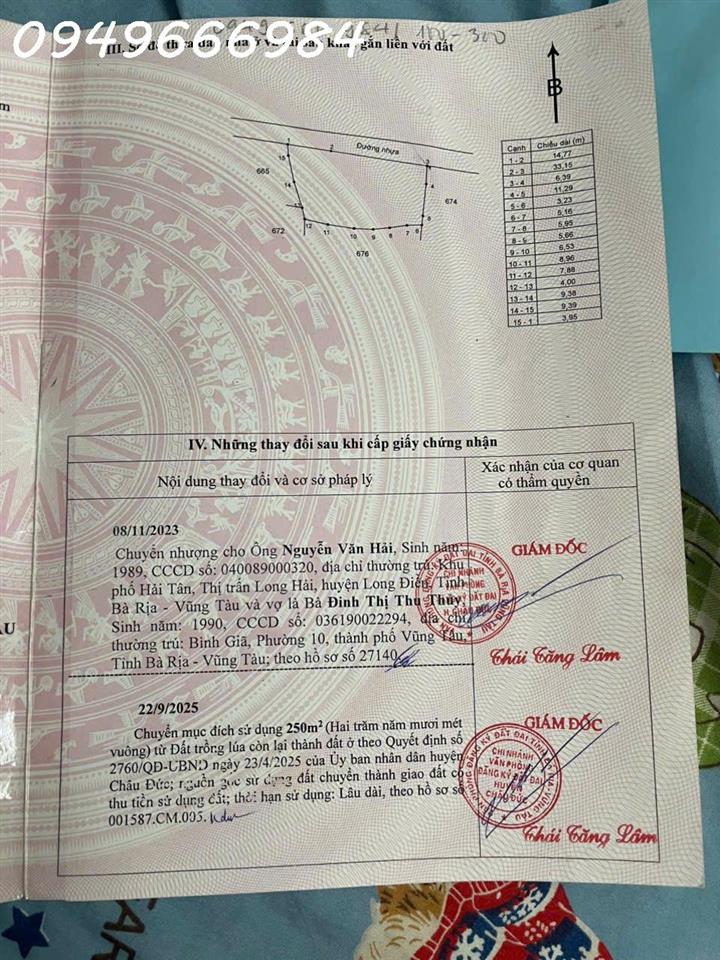 0949666984
III. Sơ đồ thửa đất, nhà ở và tài sản khác gắn liền với đất
100-300
B
Đường nhựa
1
2
3
15
4
665
14
674
13
5
672
12
11
10
9
8
7
6
676
Cạnh Chiều dài (m)
1 - 2 14,77
2 - 3 33,15
3 - 4 6,39
4 - 5 11,29
5 - 6 3,23
6 - 7 5,16
7 - 8 5,95
8 - 9 5,66
9 - 10 6,53
10 - 11 8,96
11 - 12 7,88
12 - 13 4,00
13 - 14 9,38
14 - 15 9,39
15 - 1 3,95
IV. Những thay đổi sau khi cấp giấy chứng nhận
Nội dung thay đổi và cơ sở pháp lý
Xác nhận của cơ quan
có thẩm quyền
08/11/2023
Chuyển nhượng cho Ông Nguyễn Văn Hải, Sinh năm:
1989, CCCD số: 040089000320, địa chỉ thường trú: Khu
phố Hải Tân, Thị trấn Long Hải, huyện Long Điền, Tỉnh
Bà Rịa - Vũng Tàu và vợ là Bà Đinh Thị Thu Thủy,
Sinh năm: 1990, CCCD số: 036190022294, địa chỉ
thường trú: Bình Giã, Phường 10, thành phố Vũng Tàu,
Tỉnh Bà Rịa - Vũng Tàu; theo hồ sơ số 27140
GIÁM ĐỐC
CHI NHÁNH
Thái Tăng Lâm
22/9/2025
Chuyển mục đích sử dụng 250m² (Hai trăm năm mươi mét
vuông) từ Đất trồng lúa còn lại thành đất ở theo Quyết định số
2760/QĐ-UBND ngày 23/4/2025 của Ủy ban nhân dân huyện
Châu Đức; nguồn gốc sử dụng đất chuyển thành giao đất có
thu tiền sử dụng đất; thời hạn sử dụng: Lâu dài, theo hồ sơ số
001587.CM.005.
GIÁM ĐỐC
CHI NHÁNH
VĂN PHÒNG
ĐĂNG KÝ ĐẤT ĐAI
HUYỆN
CHÂU ĐỨC
Thái Tăng Lâm